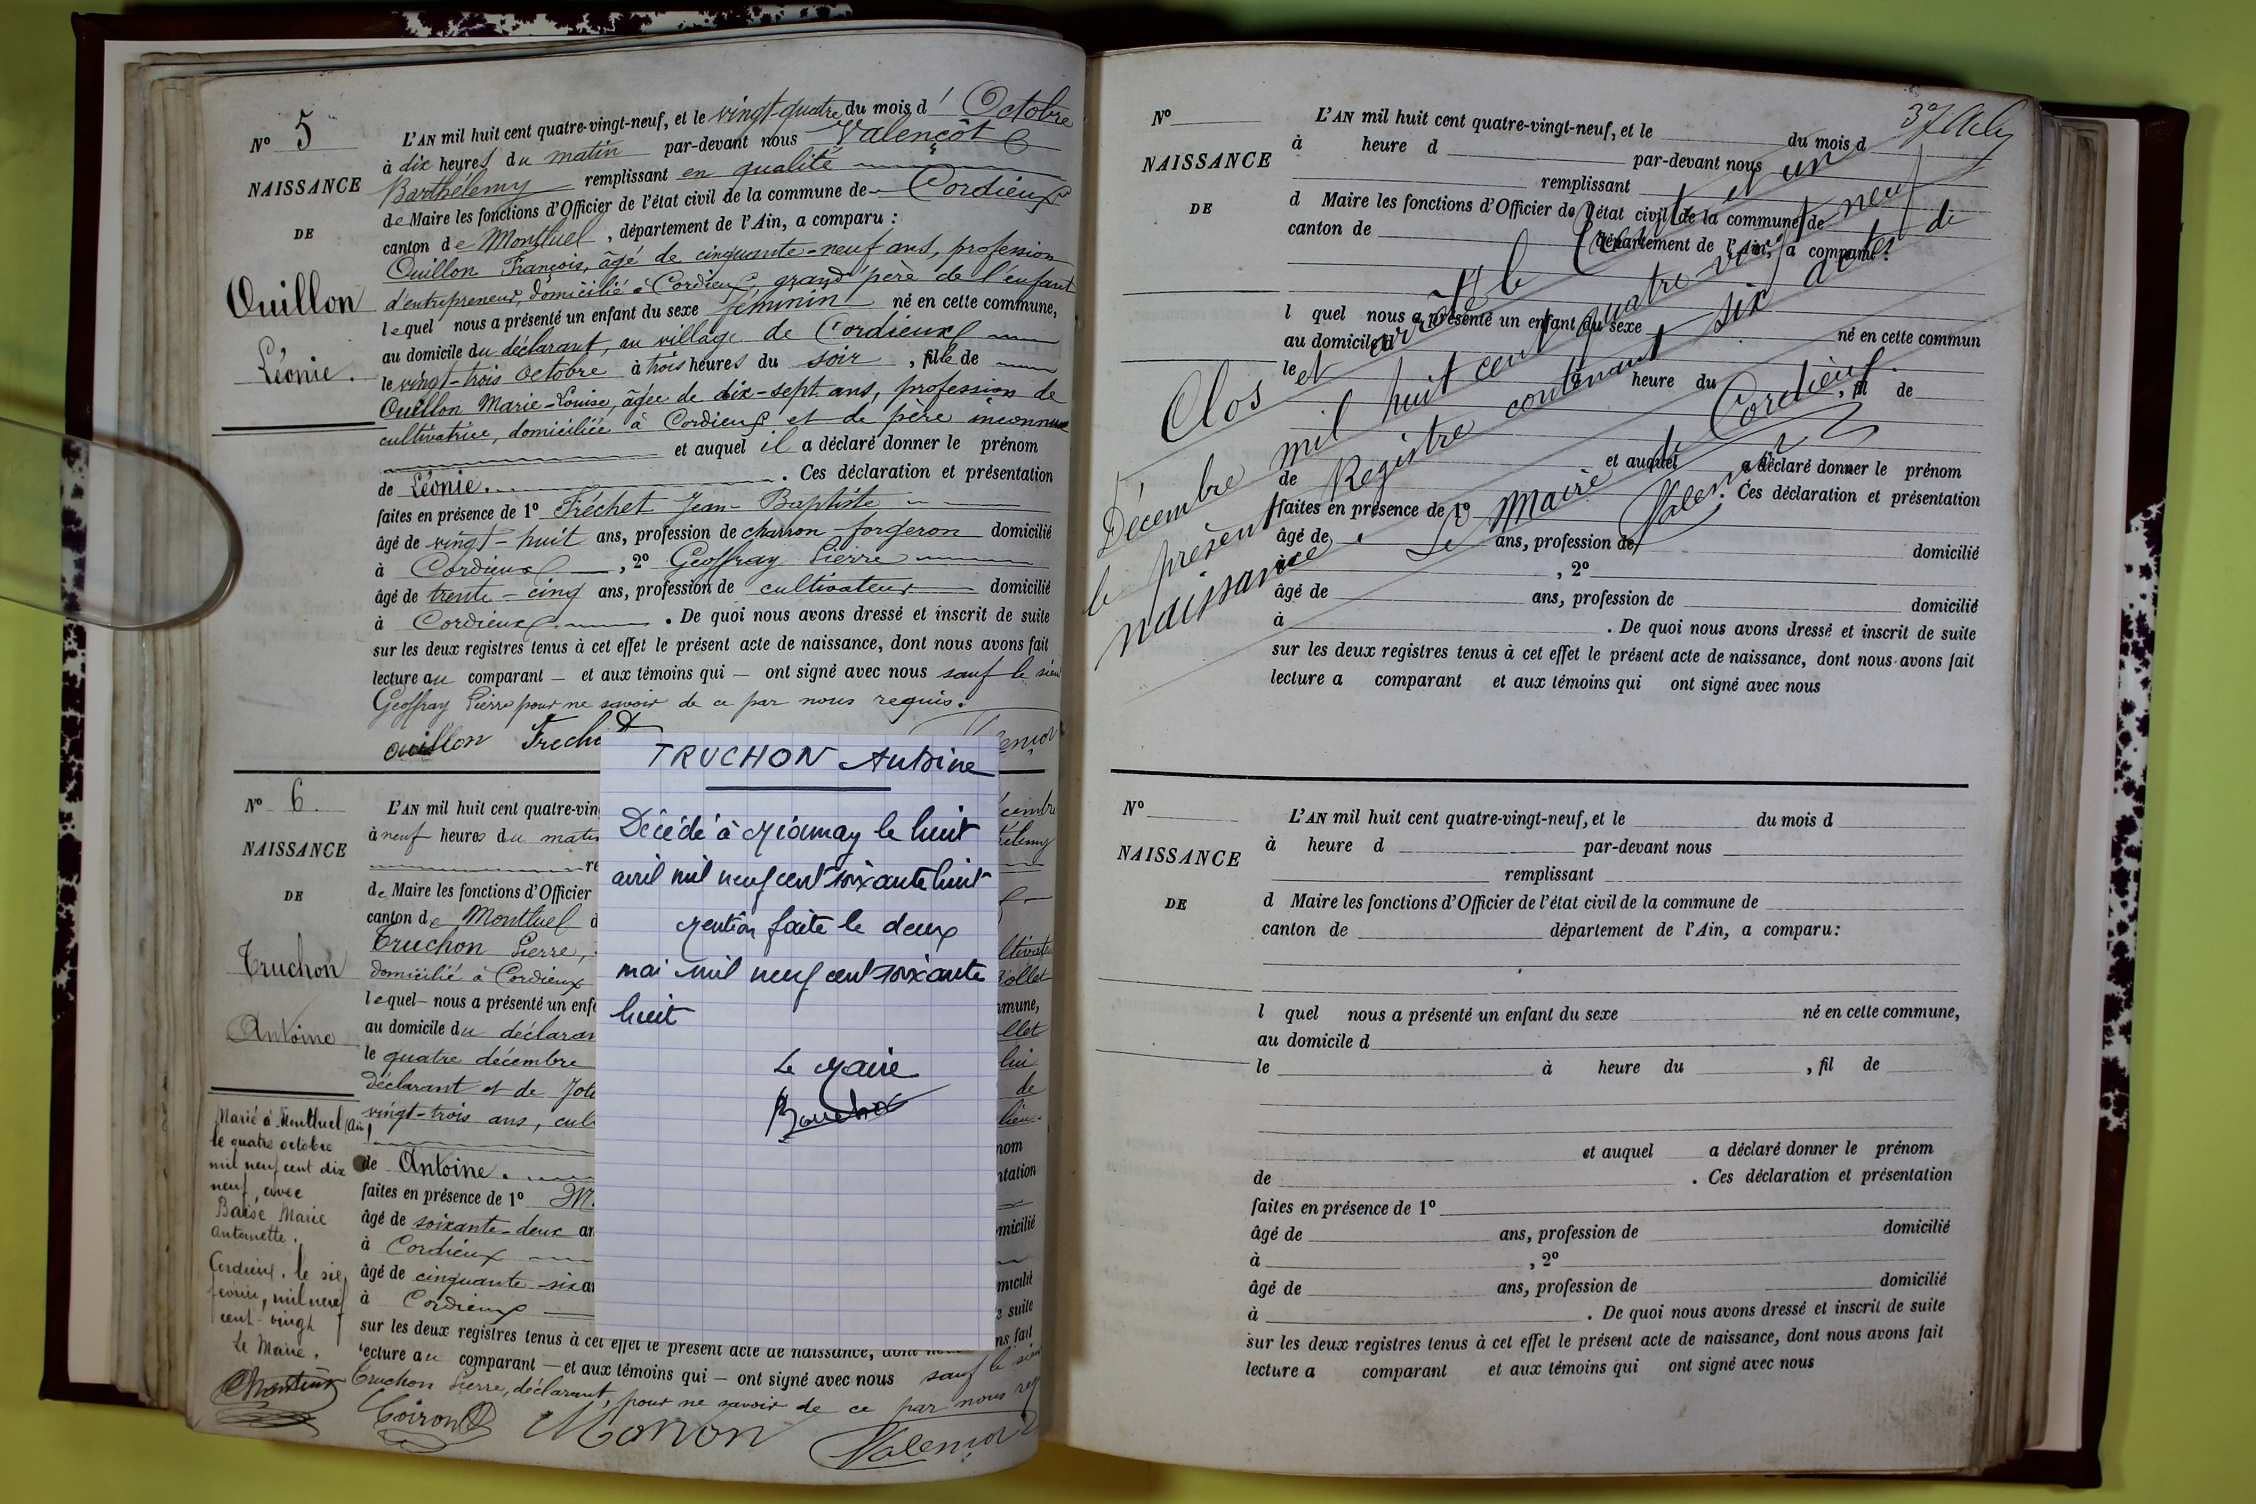 Nº 5
NAISSANCE
DE
Ouillon
Léonie.
L'AN mil huit cent quatre-vingt-neuf, et le vingt-quatre du mois d'Octobre
à dix heures du matin par-devant nous Valençot
Barthélemy remplissant en qualité
de Maire les fonctions d'Officier de l'état civil de la commune de Cordieux
canton de Montluel, département de l'Ain, a comparu :
Ouillon François, âgé de cinquante-neuf ans, profession
d'entrepreneur, domicilié à Cordieux, grand'père de l'enfant
lequel nous a présenté un enfant du sexe féminin né en cette commune,
au domicile du déclarant, au village de Cordieux
le vingt-trois Octobre à trois heures du soir, fille de
Ouillon Marie-Louise, âgée de dix-sept ans, profession de
cultivatrice, domiciliée à Cordieux et de père inconnu
et auquel il a déclaré donner le prénom
de Léonie. Ces déclaration et présentation
faites en présence de 1º Fréchet Jean-Baptiste
âgé de vingt-huit ans, profession de charron-forgeron domicilié
à Cordieux, 2º Geoffray Pierre
âgé de trente-cinq ans, profession de cultivateur domicilié
à Cordieux. De quoi nous avons dressé et inscrit de suite
sur les deux registres tenus à cet effet le présent acte de naissance, dont nous avons fait
lecture au comparant et aux témoins qui ont signé avec nous sauf le sieur
Geoffray Pierre pour ne savoir de ce par nous requis.
Ouillon Frechet
Nº 6.
NAISSANCE
DE
Truchon
Antoine
Marié à Montluel (Ain)
le quatre octobre
mil neuf cent dix
neuf, avec
Marie
Antoinette.
Cordieux, le six
février, mil neuf
cent-vingt
Le Maire.
L'AN mil huit cent quatre-vin
à neuf heures du matin
de Maire les fonctions d'Officier
canton de Montluel
Truchon Pierre,
domicilié à Cordieux
lequel nous a présenté un enf
au domicile du déclaran
le quatre décembre
déclarant et de
vingt-trois ans, cul
de Antoine.
faites en présence de 1º M
âgé de soixante-deux an
à Cordieux
âgé de cinquante-six an
à Cordieux
sur les deux registres tenus à cet effet le présent acte de naissance, dont
lecture au comparant et aux témoins qui ont signé avec nous sauf le sieur
Truchon Pierre, déclarant, pour ne savoir de ce par nous req
Coiron Monon Valençot
TRUCHON Antoine
Décédé à Mionnay le huit
avril mil neuf cent soixante huit
Mention faite le deux
mai mil neuf cent soixante
huit
Le Maire
37
Nº
NAISSANCE
DE
L'AN mil huit cent quatre-vingt-neuf, et le du mois d
à heure d par-devant nous
remplissant
d Maire les fonctions d'Officier de l'état civil de la commune de
canton de département de l'Ain, a comparu :
l quel nous a présenté un enfant du sexe né en cette commun
au domicile d
le à heure du , fil de
et auquel a déclaré donner le prénom
de . Ces déclaration et présentation
faites en présence de 1º
âgé de ans, profession de domicilié
à , 2º
âgé de ans, profession de domicilié
à . De quoi nous avons dressé et inscrit de suite
sur les deux registres tenus à cet effet le présent acte de naissance, dont nous avons fait
lecture a comparant et aux témoins qui ont signé avec nous
Clos et arrêté le trente et un
Décembre mil huit cent quatre-vingt neuf
le présent Registre contenant six actes de
naissance. Le Maire de Cordieux
Valençot
Nº
NAISSANCE
DE
L'AN mil huit cent quatre-vingt-neuf, et le du mois d
à heure d par-devant nous
remplissant
d Maire les fonctions d'Officier de l'état civil de la commune de
canton de département de l'Ain, a comparu :
l quel nous a présenté un enfant du sexe né en cette commune,
au domicile d
le à heure du , fil de
et auquel a déclaré donner le prénom
de . Ces déclaration et présentation
faites en présence de 1º
âgé de ans, profession de domicilié
à , 2º
âgé de ans, profession de domicilié
à . De quoi nous avons dressé et inscrit de suite
sur les deux registres tenus à cet effet le présent acte de naissance, dont nous avons fait
lecture a comparant et aux témoins qui ont signé avec nous